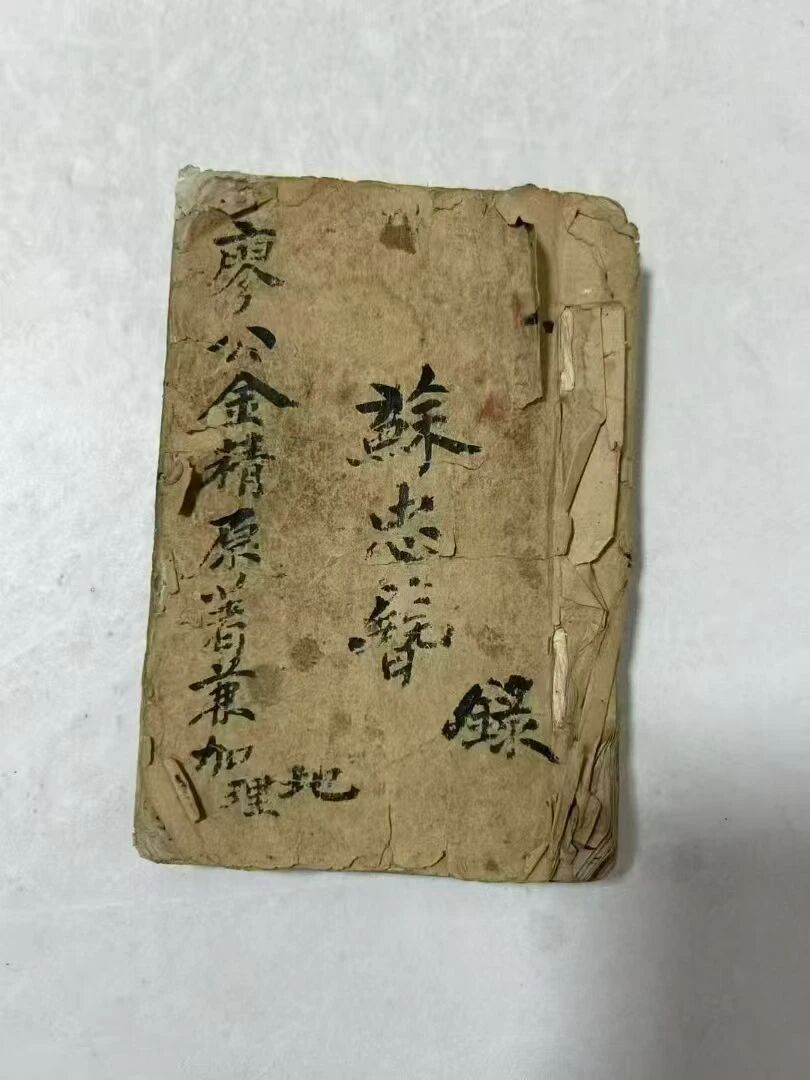 蘇忠簪
錄
廖公金精原著兼加
地理